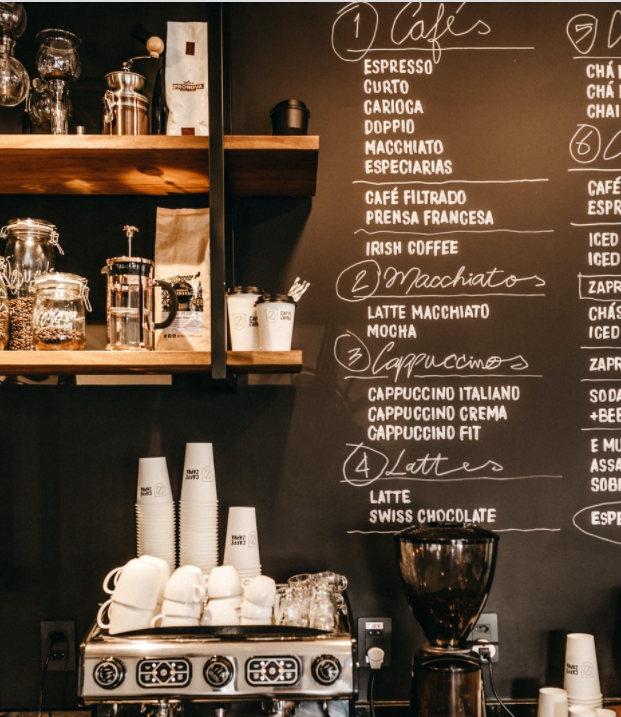 1 Cafés
ESPRESSO
CURTO
CARIOCA
DOPPIO
MACCHIATO
ESPECIARIAS
CAFÉ FILTRADO
PRENSA FRANCESA
IRISH COFFEE
2 Macchiatos
LATTE MACCHIATO
MOCHA
3 Cappuccinos
CAPPUCCINO ITALIANO
CAPPUCCINO CREMA
CAPPUCCINO FIT
4 Lattes
LATTE
SWISS CHOCOLATE
5
CHÁ
CHÁ
CHAI
6
CAFÉ
ESPR
ICED
ICED
ZAPR
CHÁS
ICED
ZAPR
SODA
+BEB
E MU
ASSA
SOBR
ESPE
PRONOVA
CAFFÈ
ZAPRI